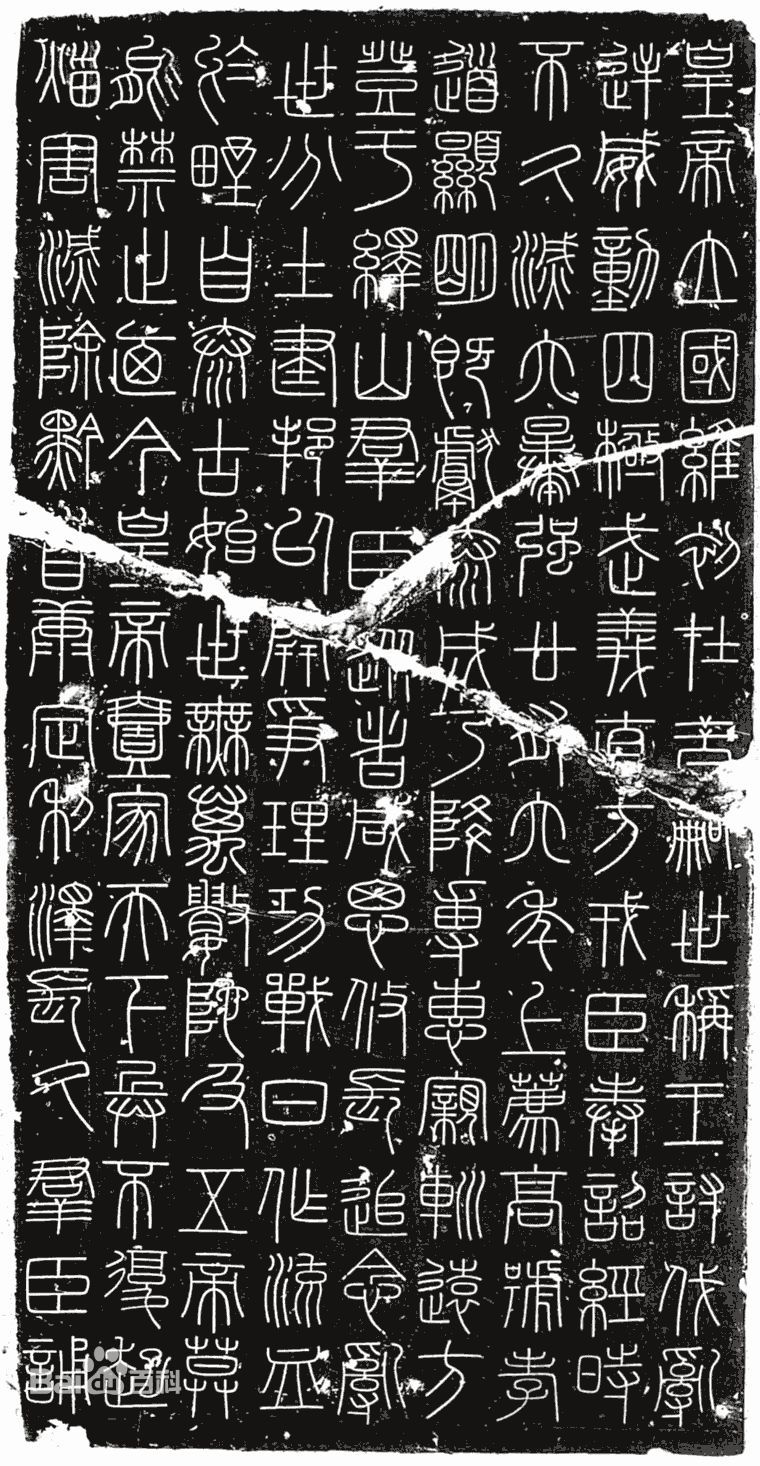 皇帝立國維初在昔嗣世稱王討伐亂
逆威動四極武義直方戎臣奉詔經時
不久滅六暴強廿有六年上薦高號孝
道顯明既獻泰成乃降專惠親巡遠方
登于繹山羣臣從者咸思攸長追念亂
世分土建邦以開爭理功戰日作流血
於野自泰古始世無萬數陀及五帝莫
能禁止廼今皇帝壹家天下兵不復起
熖害滅除黔首康定利澤長久羣臣誦
Baidu百科